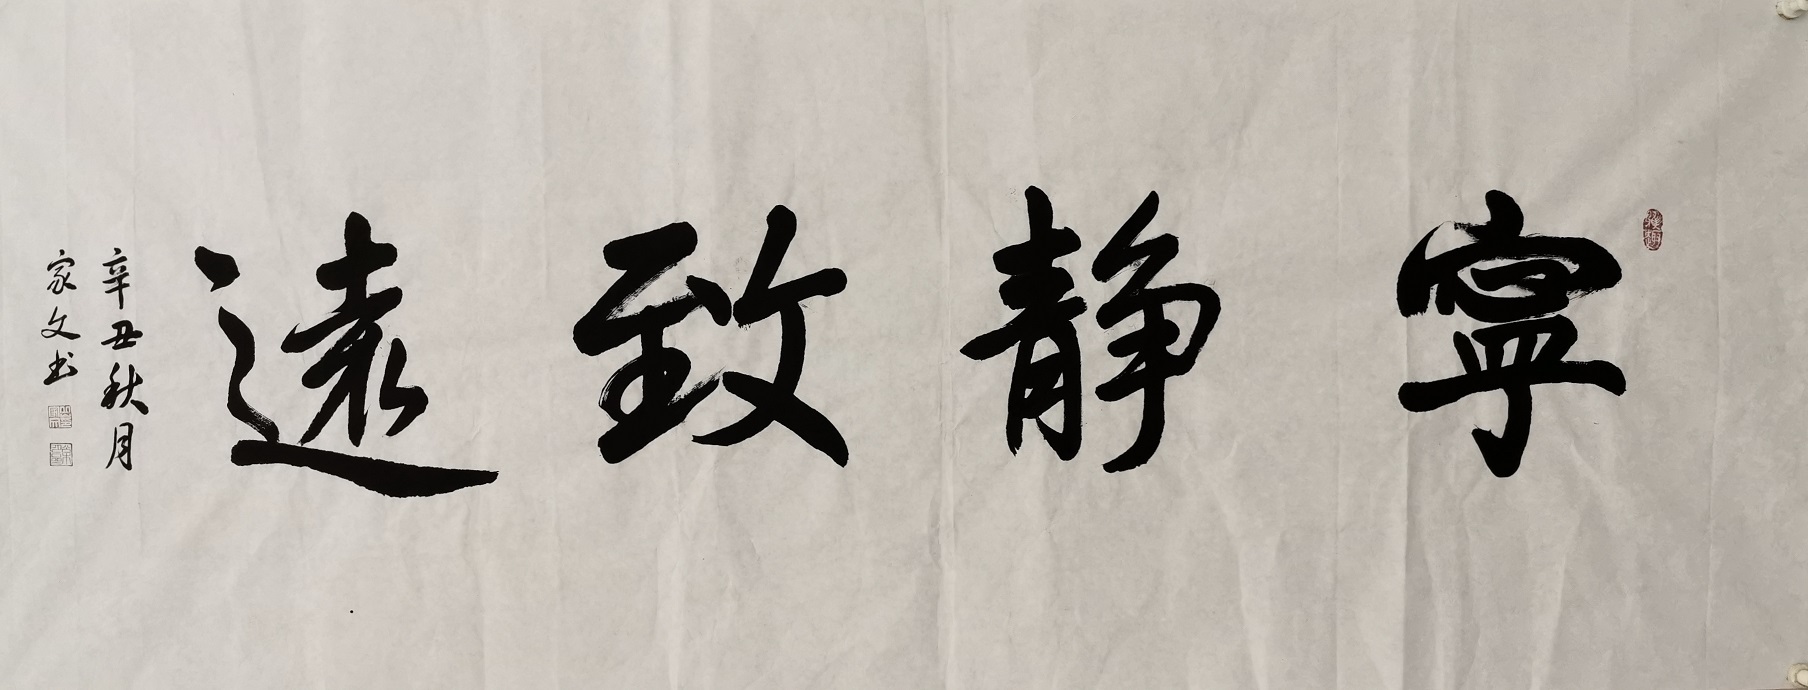 寧静致遠
辛丑秋月
家文书